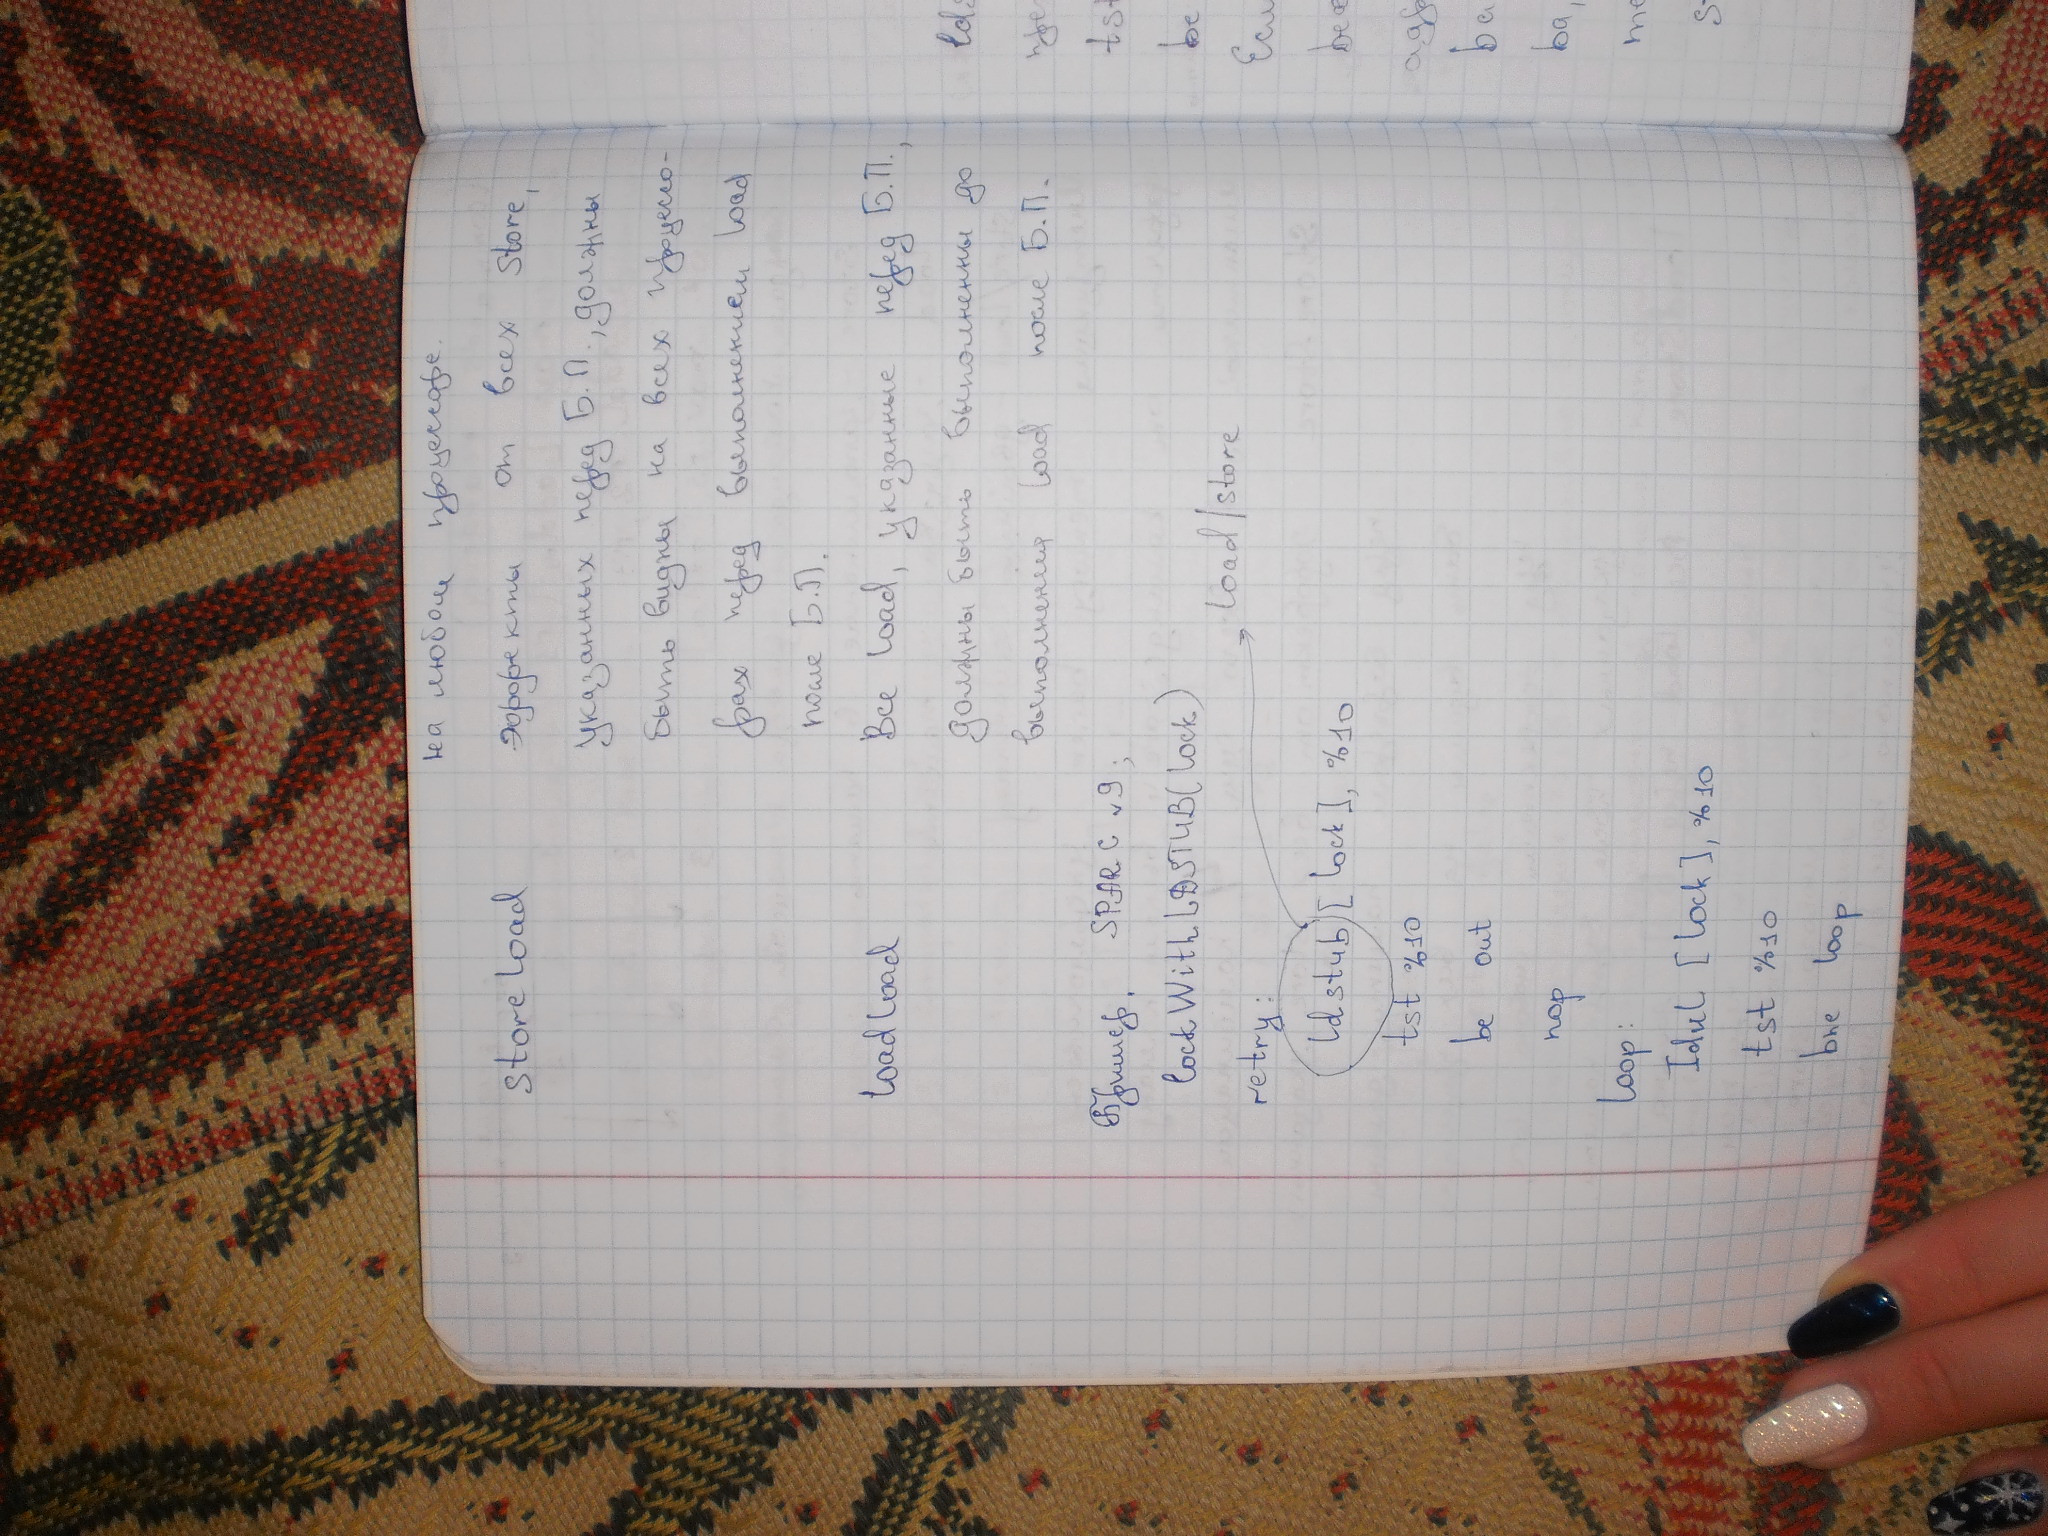 на любом процессоре.
storeload
эффекты от всех store,
указанных перед Б.П., должны
быть видны на всех процессо-
рах перед выполнением load
после Б.П.
loadload
Все load, указанные перед Б.П.,
должны быть выполненны до
выполнения load после Б.П.
Пример. SPARC v9;
lockWithLDSTUB(lock)
retry:
load/store
ldstub [lock], %10
tst %10
be out
nop
loop:
ldul [lock], %10
tst %10
bne loop
tst
be